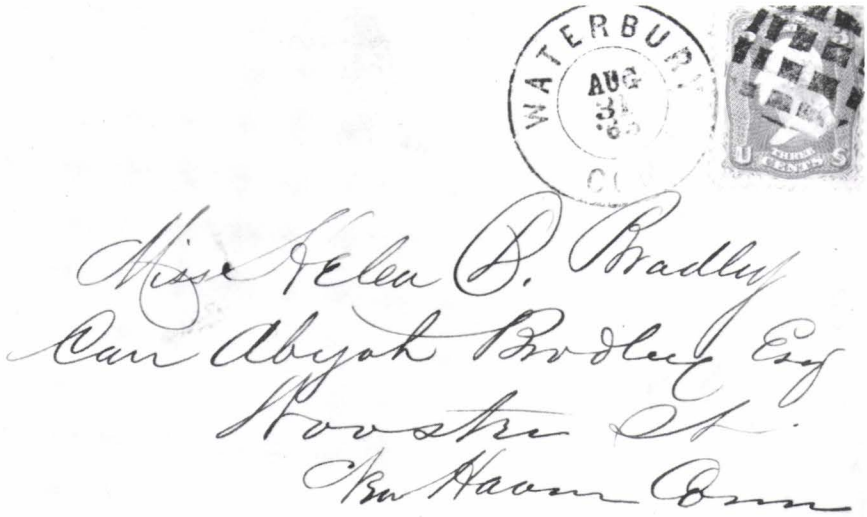 WATERBURY
AUG
31
'65
U THREE CENTS S
Miss Helen D. Bradley
Care Abijah Bradley Esq
Wooster St.
New Haven Conn